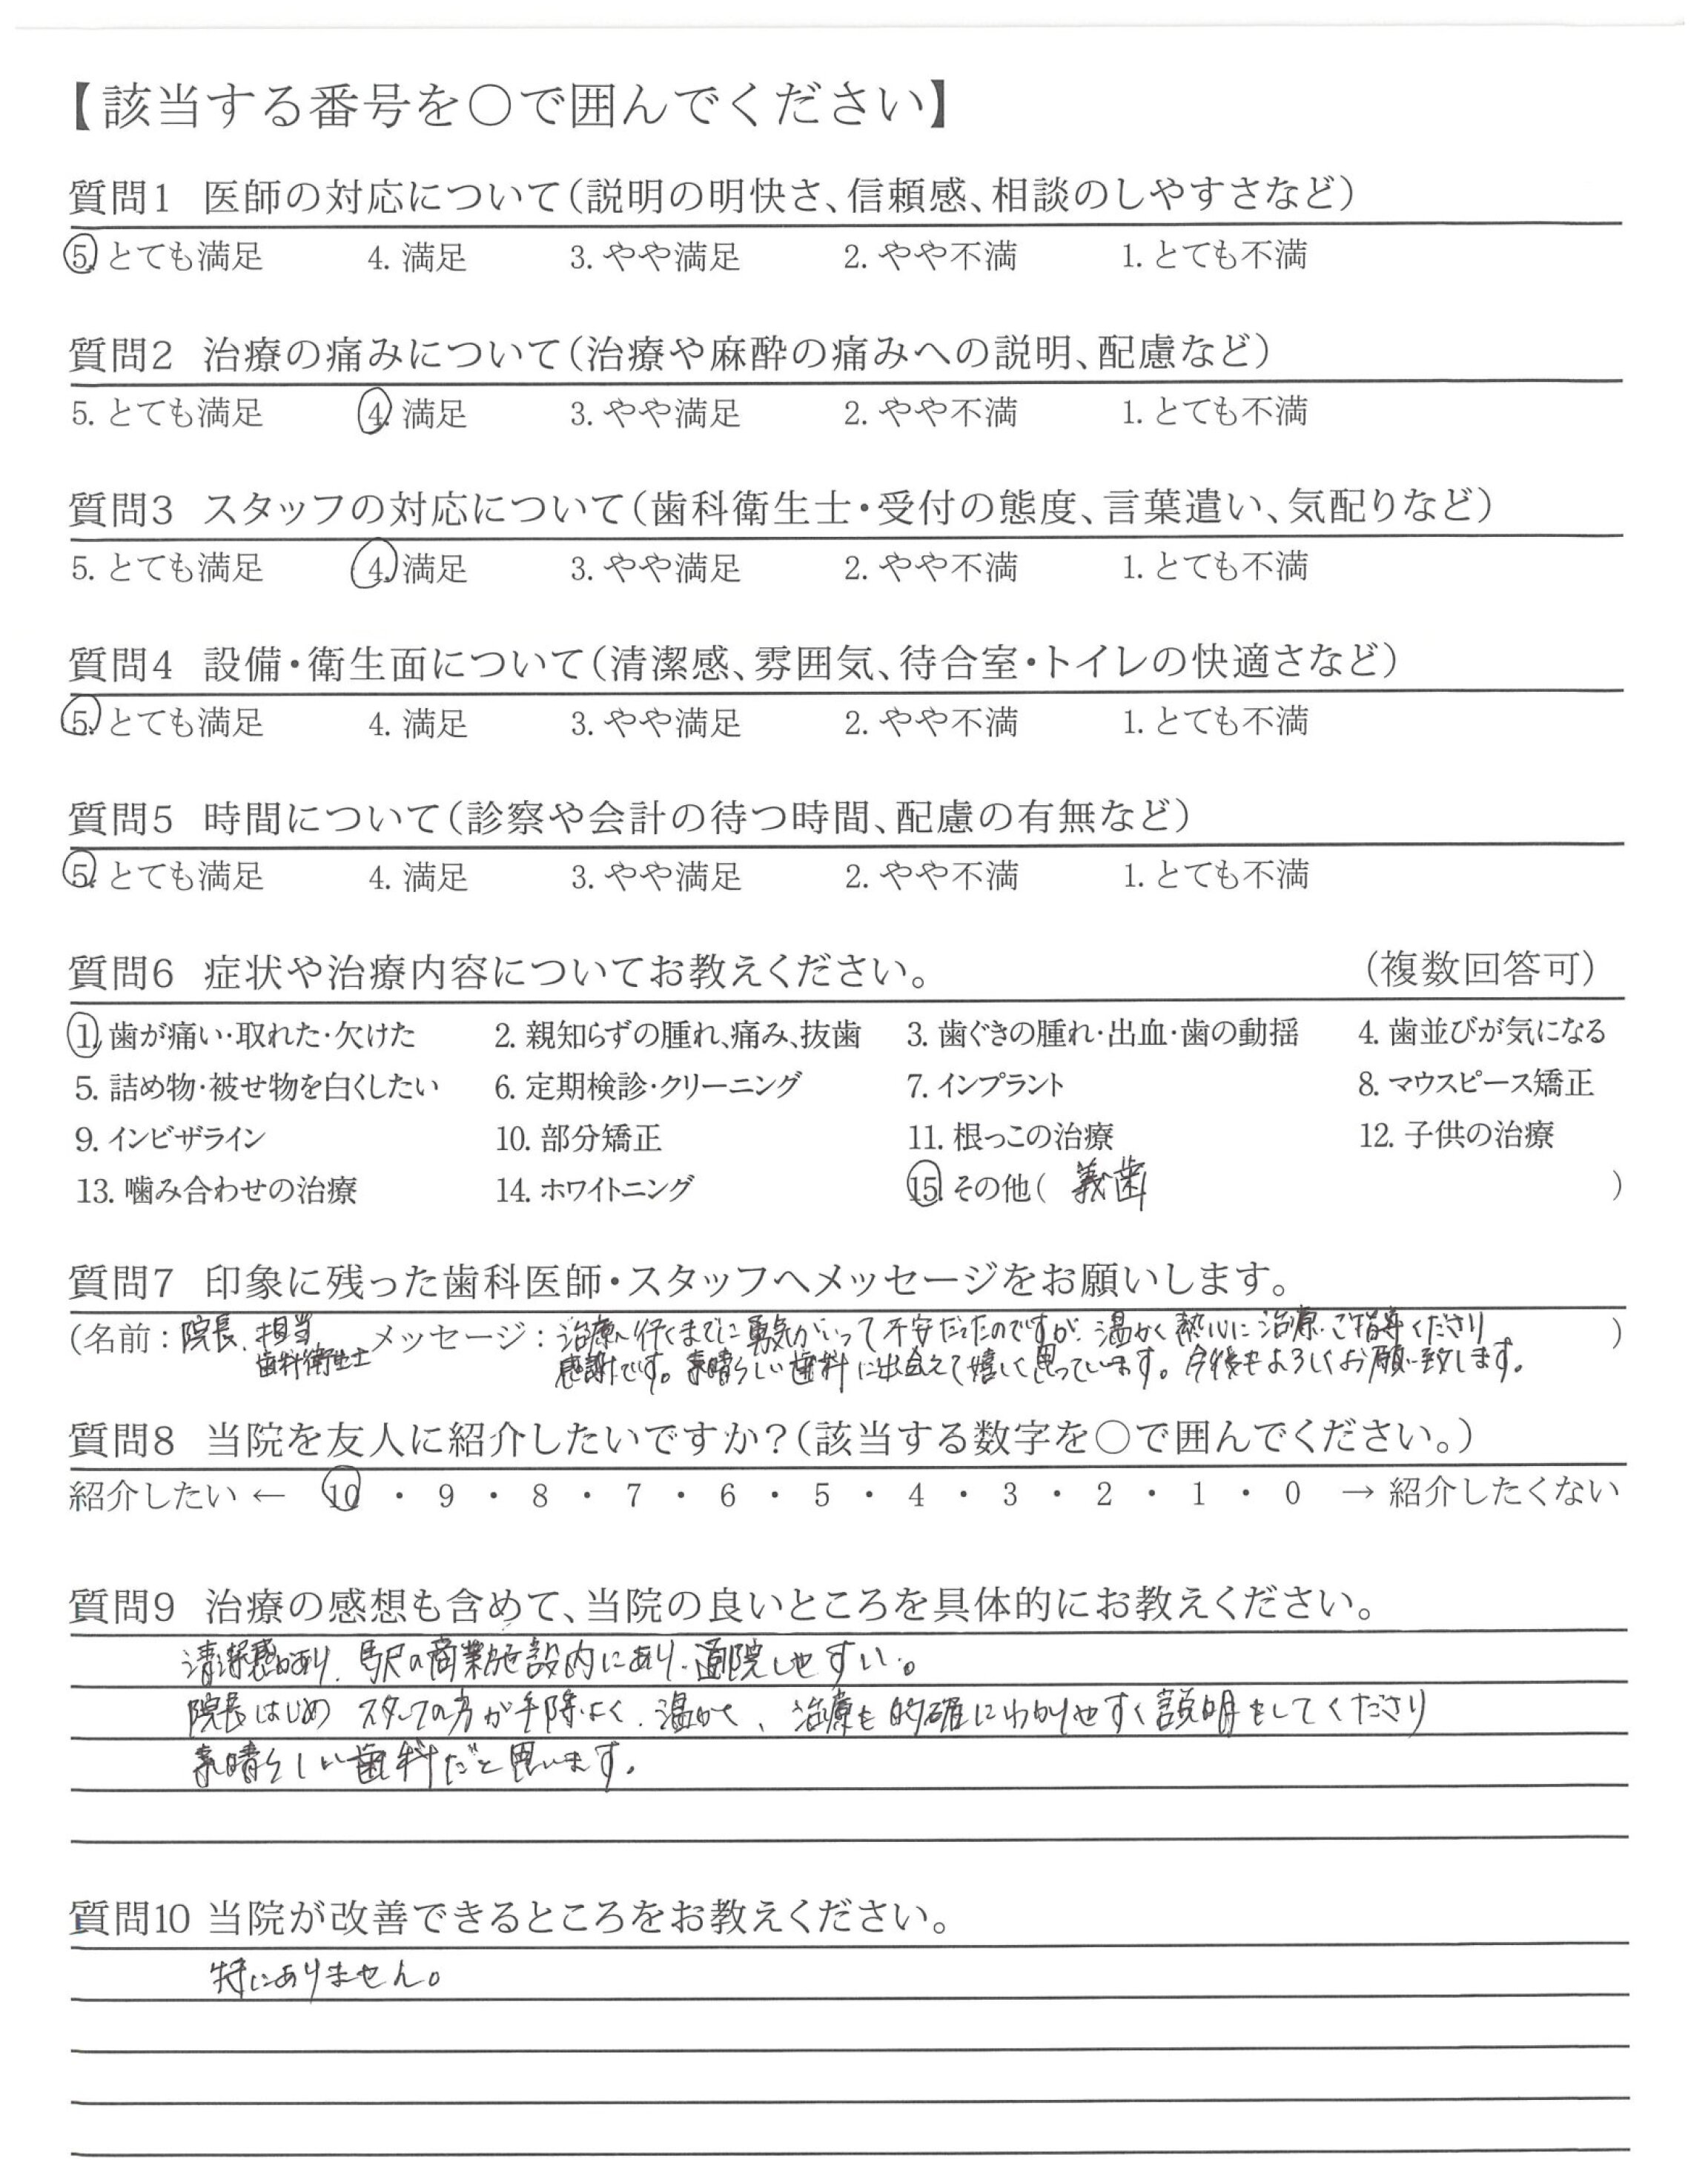 【該当する番号を○で囲んでください】
質問1 医師の対応について(説明の明快さ、信頼感、相談のしやすさなど)
5. とても満足 4. 満足 3. やや満足 2. やや不満 1. とても不満
質問2 治療の痛みについて(治療や麻酔の痛みへの説明、配慮など)
5. とても満足 4. 満足 3. やや満足 2. やや不満 1. とても不満
質問3 スタッフの対応について(歯科衛生士・受付の態度、言葉遣い、気配りなど)
5. とても満足 4. 満足 3. やや満足 2. やや不満 1. とても不満
質問4 設備・衛生面について(清潔感、雰囲気、待合室・トイレの快適さなど)
5. とても満足 4. 満足 3. やや満足 2. やや不満 1. とても不満
質問5 時間について(診察や会計の待つ時間、配慮の有無など)
5. とても満足 4. 満足 3. やや満足 2. やや不満 1. とても不満
質問6 症状や治療内容についてお教えください。 (複数回答可)
1. 歯が痛い・取れた・欠けた 2. 親知らずの腫れ、痛み、抜歯 3. 歯ぐきの腫れ・出血・歯の動揺 4. 歯並びが気になる
5. 詰め物・被せ物を白くしたい 6. 定期検診・クリーニング 7. インプラント 8. マウスピース矯正
9. インビザライン 10. 部分矯正 11. 根っこの治療 12. 子供の治療
13. 噛み合わせの治療 14. ホワイトニング 15. その他( 義歯 )
質問7 印象に残った歯科医師・スタッフへメッセージをお願いします。
(名前：院長、担当 歯科衛生士 メッセージ：治療へ行くまでに勇気がいって不安だったのですが、温かく熱心に治療、ご指導くださり )
感謝です。素晴らしい歯科に出会えて嬉しく思っています。今後もよろしくお願い致します。
質問8 当院を友人に紹介したいですか？(該当する数字を○で囲んでください。)
紹介したい ← 10 ・ 9 ・ 8 ・ 7 ・ 6 ・ 5 ・ 4 ・ 3 ・ 2 ・ 1 ・ 0 → 紹介したくない
質問9 治療の感想も含めて、当院の良いところを具体的にお教えください。
清潔感があり、駅の商業施設内にあり、通院しやすい。
院長はじめ スタッフの方が手際よく、温かく、治療も的確にわかりやすく説明をしてくださり
素晴らしい歯科だと思います。
質問10 当院が改善できるところをお教えください。
特にありません。